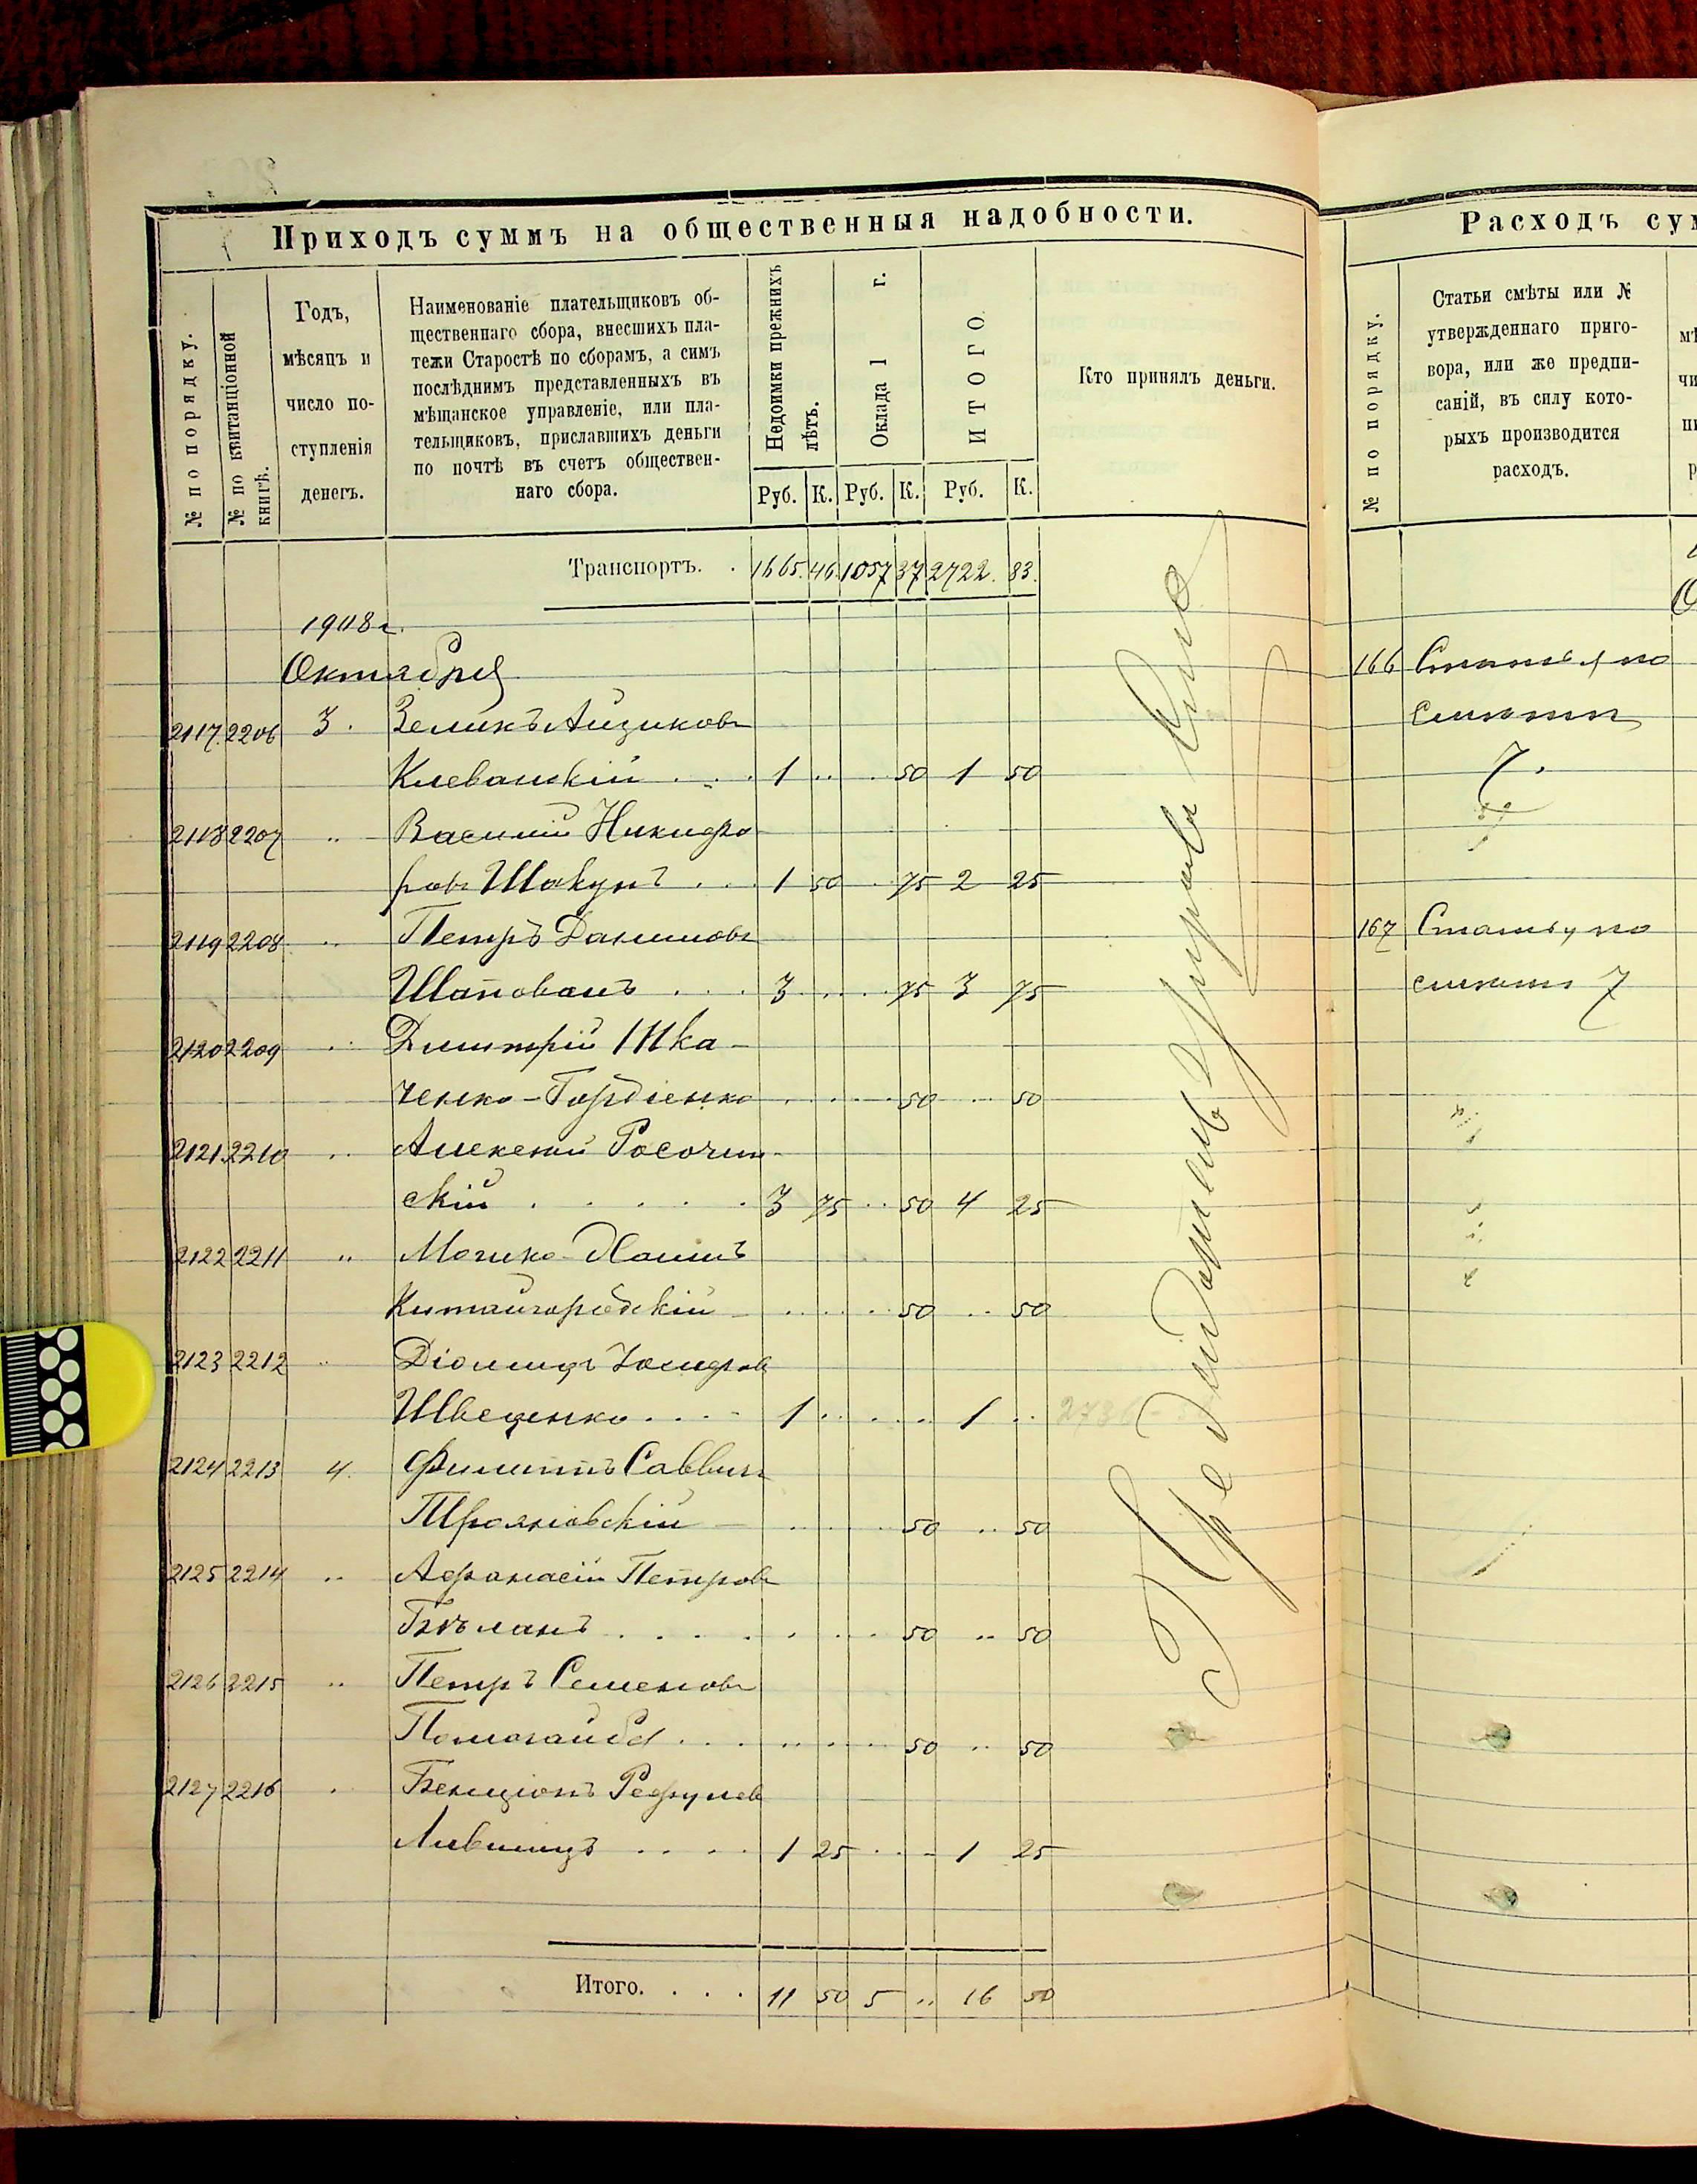 Приходъ суммъ на общественныя надобности.
№ по порядку.
№ по квитанціонной
книгѣ.
Годъ,
мѣсяцъ и
число по-
ступленія
денегъ.
Наименованіе плательщиковъ об-
щественнаго сбора, внесшихъ пла-
тежи Старостѣ по сборамъ, а симъ
послѣднимъ представленныхъ въ
мѣщанское управленіе, или пла-
тельщиковъ, приславшихъ деньги
по почтѣ въ счетъ обществен-
наго сбора.
Недоимки прежнихъ
лѣтъ.
Оклада 1 г.
ИТОГО
Кто принялъ деньги.
Руб. К. Руб. К. Руб. К.
Транспортъ. . 1665. 46 1057 37 2722. 83.
1908 г.
Октября
2117 2206 3. Зеликъ Айзиковъ
Клеванскій . . . 1 .. . 50 1 50
2118 2207 .. Василій Никифо
ровъ Шакунъ . . . 1 50 . 75 2 25
2119 2208 .. Петръ Даниловъ
Шаповалъ . . . 3 . . . . 75 3 75
2120 2209 .. Димитрій Тка-
ченко-Гордіенко . . . . 50 .. 50
2121 2210 .. Алексѣй Росочин-
скій . . . . . 3 75 .. 50 4 25
2122 2211 .. Мошко Хаимъ
Китайгородскій . . . . 50 .. 50
2123 2212 .. Діомидъ
Шведенко . . . . 1 . . . . . 1 ..
2124 2213 4. Филиппъ Саввичъ
Трояновскій . . . . 50 .. 50
2125 2214 .. Афанасій Петровъ
Бѣланъ . . . . . . . 50 .. 50
2126 2215 .. Петръ Семеновъ
Помогайба . . . .. . . . 50 .. 50
2127 2216 . Бенціонъ
Лившицъ . . . . 1 25 . . . 1 25
Итого. . . . 11 50 5 .. 16 50
Расходъ сум
№ по порядку.
Статьи смѣты или №
утвержденнаго приго-
вора, или же предпи-
саній, въ силу кото-
рыхъ производится
расходъ.
166 Статья по
смѣтѣ
7.
167 Статья по
смѣтѣ 7